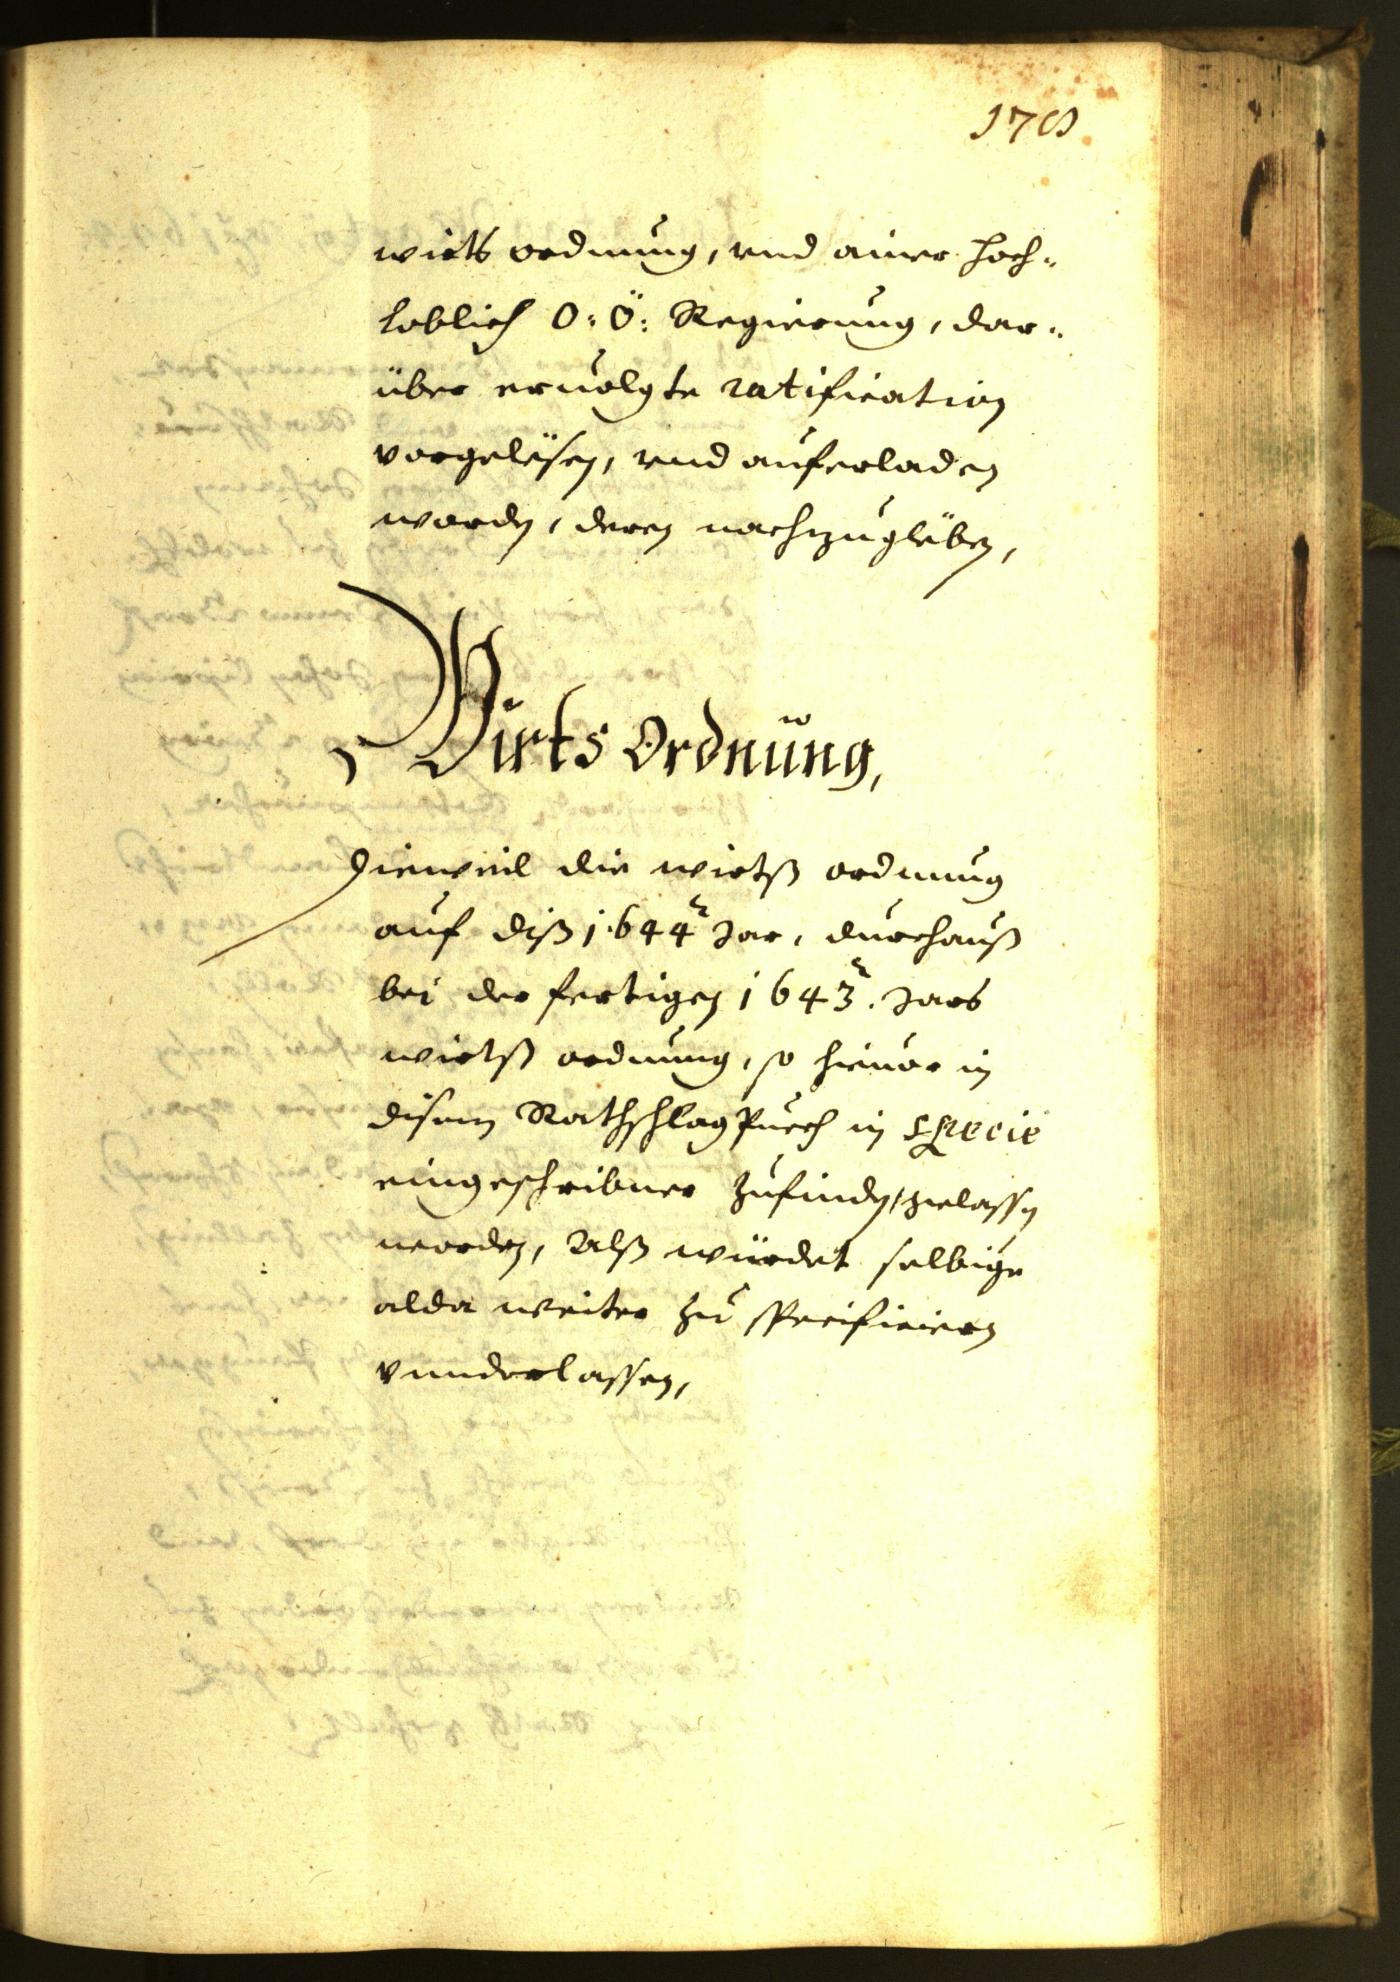 170
wirts ordnung, vnd ainer hoch-
loblich O: Ö: Regierung, dar-
über ervolgte ratification
vorgelesen, vnd auferladen
worden, deren nachzugleben,
Wirts Ordnung,
Dieweil die wirtß ordnung
auf diß 1644r Jar, durchauß
bei der fertigen 1643r. Jars
wirtß ordnung, so hieuor in
disem Rathschlag Puech in specie
eingeschribner zufinden, gelassen
worden, Alß würdet selbige
alda weiter zu specificiern
vnnderlassen,